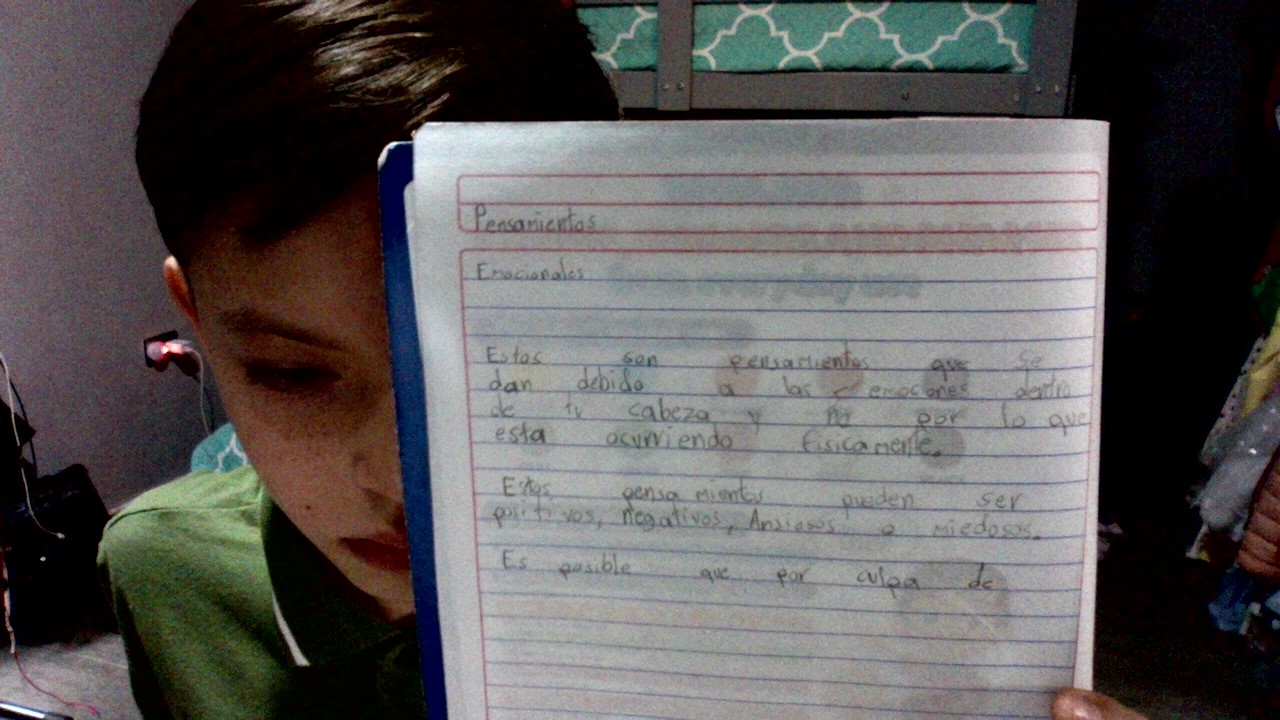 Pensamientos
Emocionales
Estos son pensamientos que se
dan debido a las emociones dentro
de tu cabeza y no por lo que
esta ocurriendo fisicamente.
Estos pensamientos pueden ser
positivos, negativos, Ansiosos o miedosos.
Es posible que por culpa de